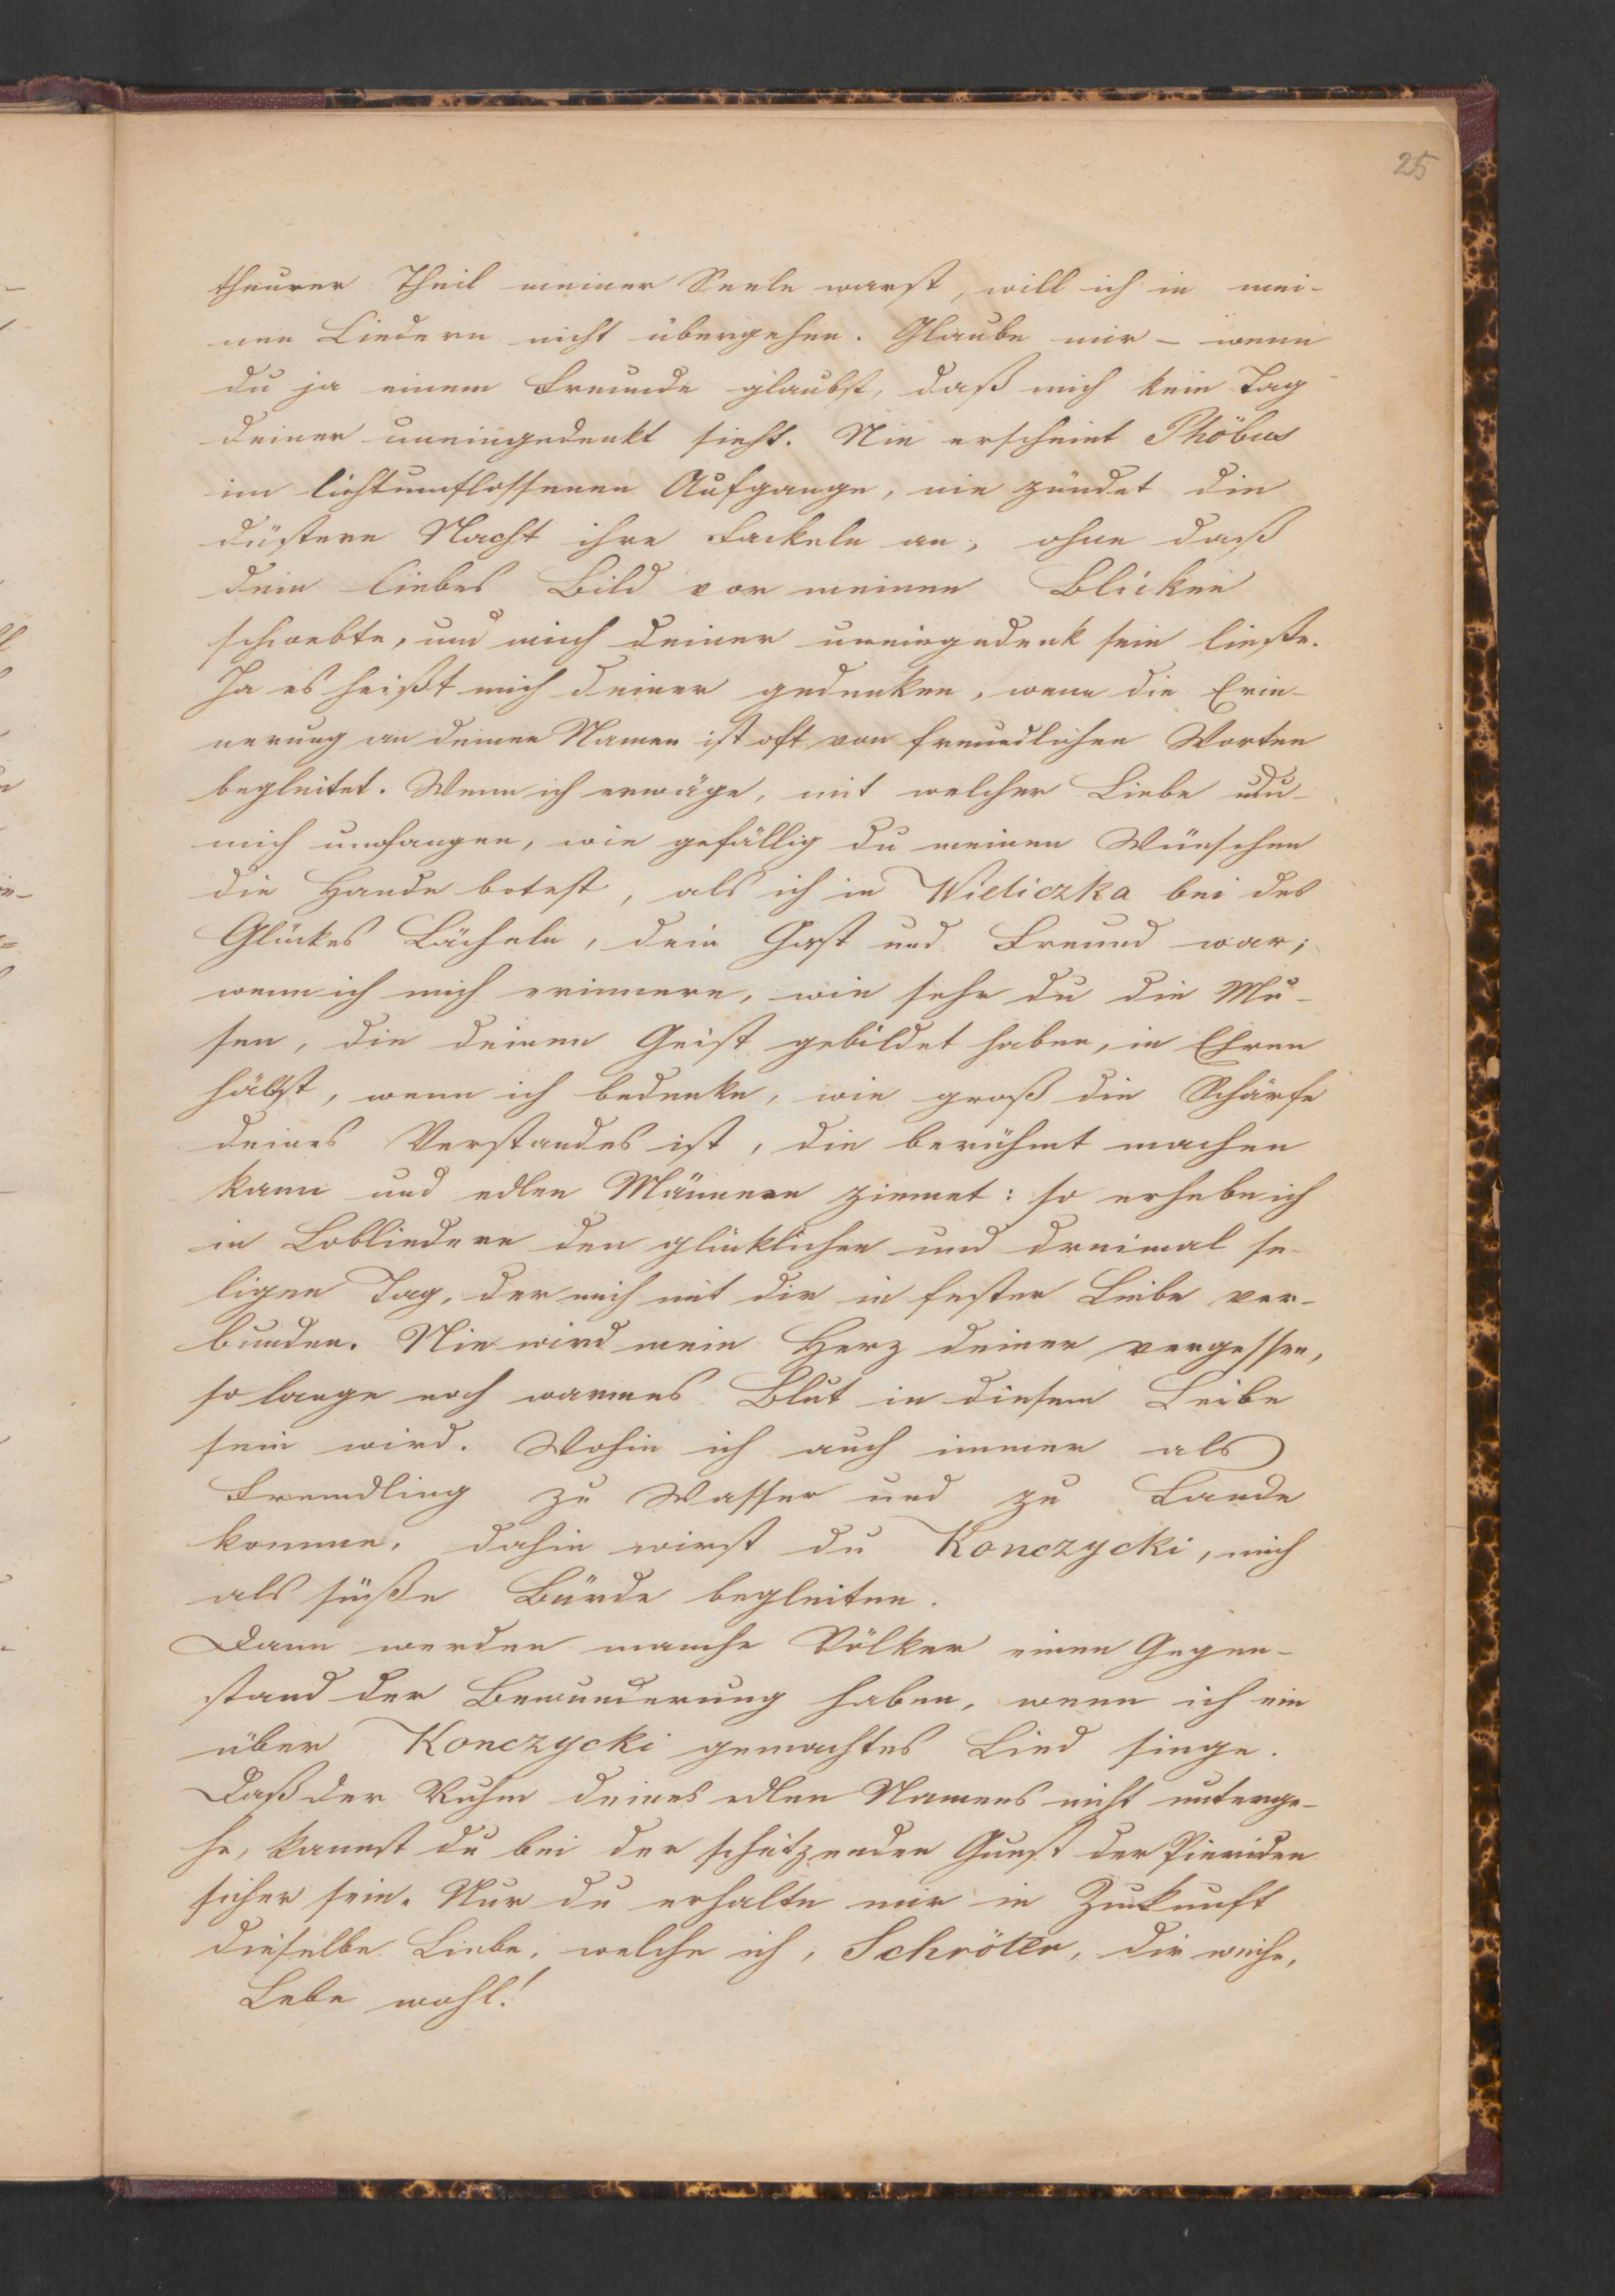 25
theurer Theil meiner Seele warst, will ich in mei-
nen Liedern nicht übergehen. Glaube mir – wenn
du ja einem Freunde glaubst, daß mich kein Tag
deiner uneingedenkt sieht. Nie erscheint Phöbus
im lichtumflossenen Aufgange, nie zündet die
düstere Nacht ihre Fackeln an, ohne daß
dein liebes Bild vor meinen Blicken
schwebte, und mich deiner uneingedenk sein ließe.
Ja es heißt mich deiner gedenken, wenn die Erin-
nerung an deinen Namen ist oft von freundlichen Worten
begleitet. Wenn ich erwäge, mit welcher Liebe du
mich umfangen, wie gefällig du meinen Wünschen
die Hande botest, als ich in Wieliczka bei des
Glückes Lächeln, dein Gast und Freund war;
wenn ich mich erinnere, wie sehr du die Mu-
sen, die deinen Geist gebildet haben, in Ehren
hältst, wenn ich bedenke, wie groß die Schärfe
deines Verstandes ist, die berühmt machen
kann und edlen Männern ziemet: so erhebe ich
in Lobliedern den glücklichen und dreimal se-
ligen Tag, der mich mit dir in fester Liebe ver-
bunden. Nie wird mein Herz deiner vergessen,
so lange noch warmes Blut in diesem Leibe
sein wird. Wohin ich auch immer als
Fremdling zu Wasser und zu Lande
komme, dahin wirst du Konczycki, mich
als süße Bürde begleiten.
Dann werden manche Völker einen Gegen-
stand der Bewunderung haben, wenn ich ein
über Konczycki gemachtes Lied singe.
Daß der Ruhm deines edlen Namens nicht unterge-
he, kannst du bei der schützenden Gunst der Pieriden
sicher sein. Nur du erhalte mir in Zukunft
dieselbe Liebe, welche ich, Schröter, dir weihe,
Lebe wohl!